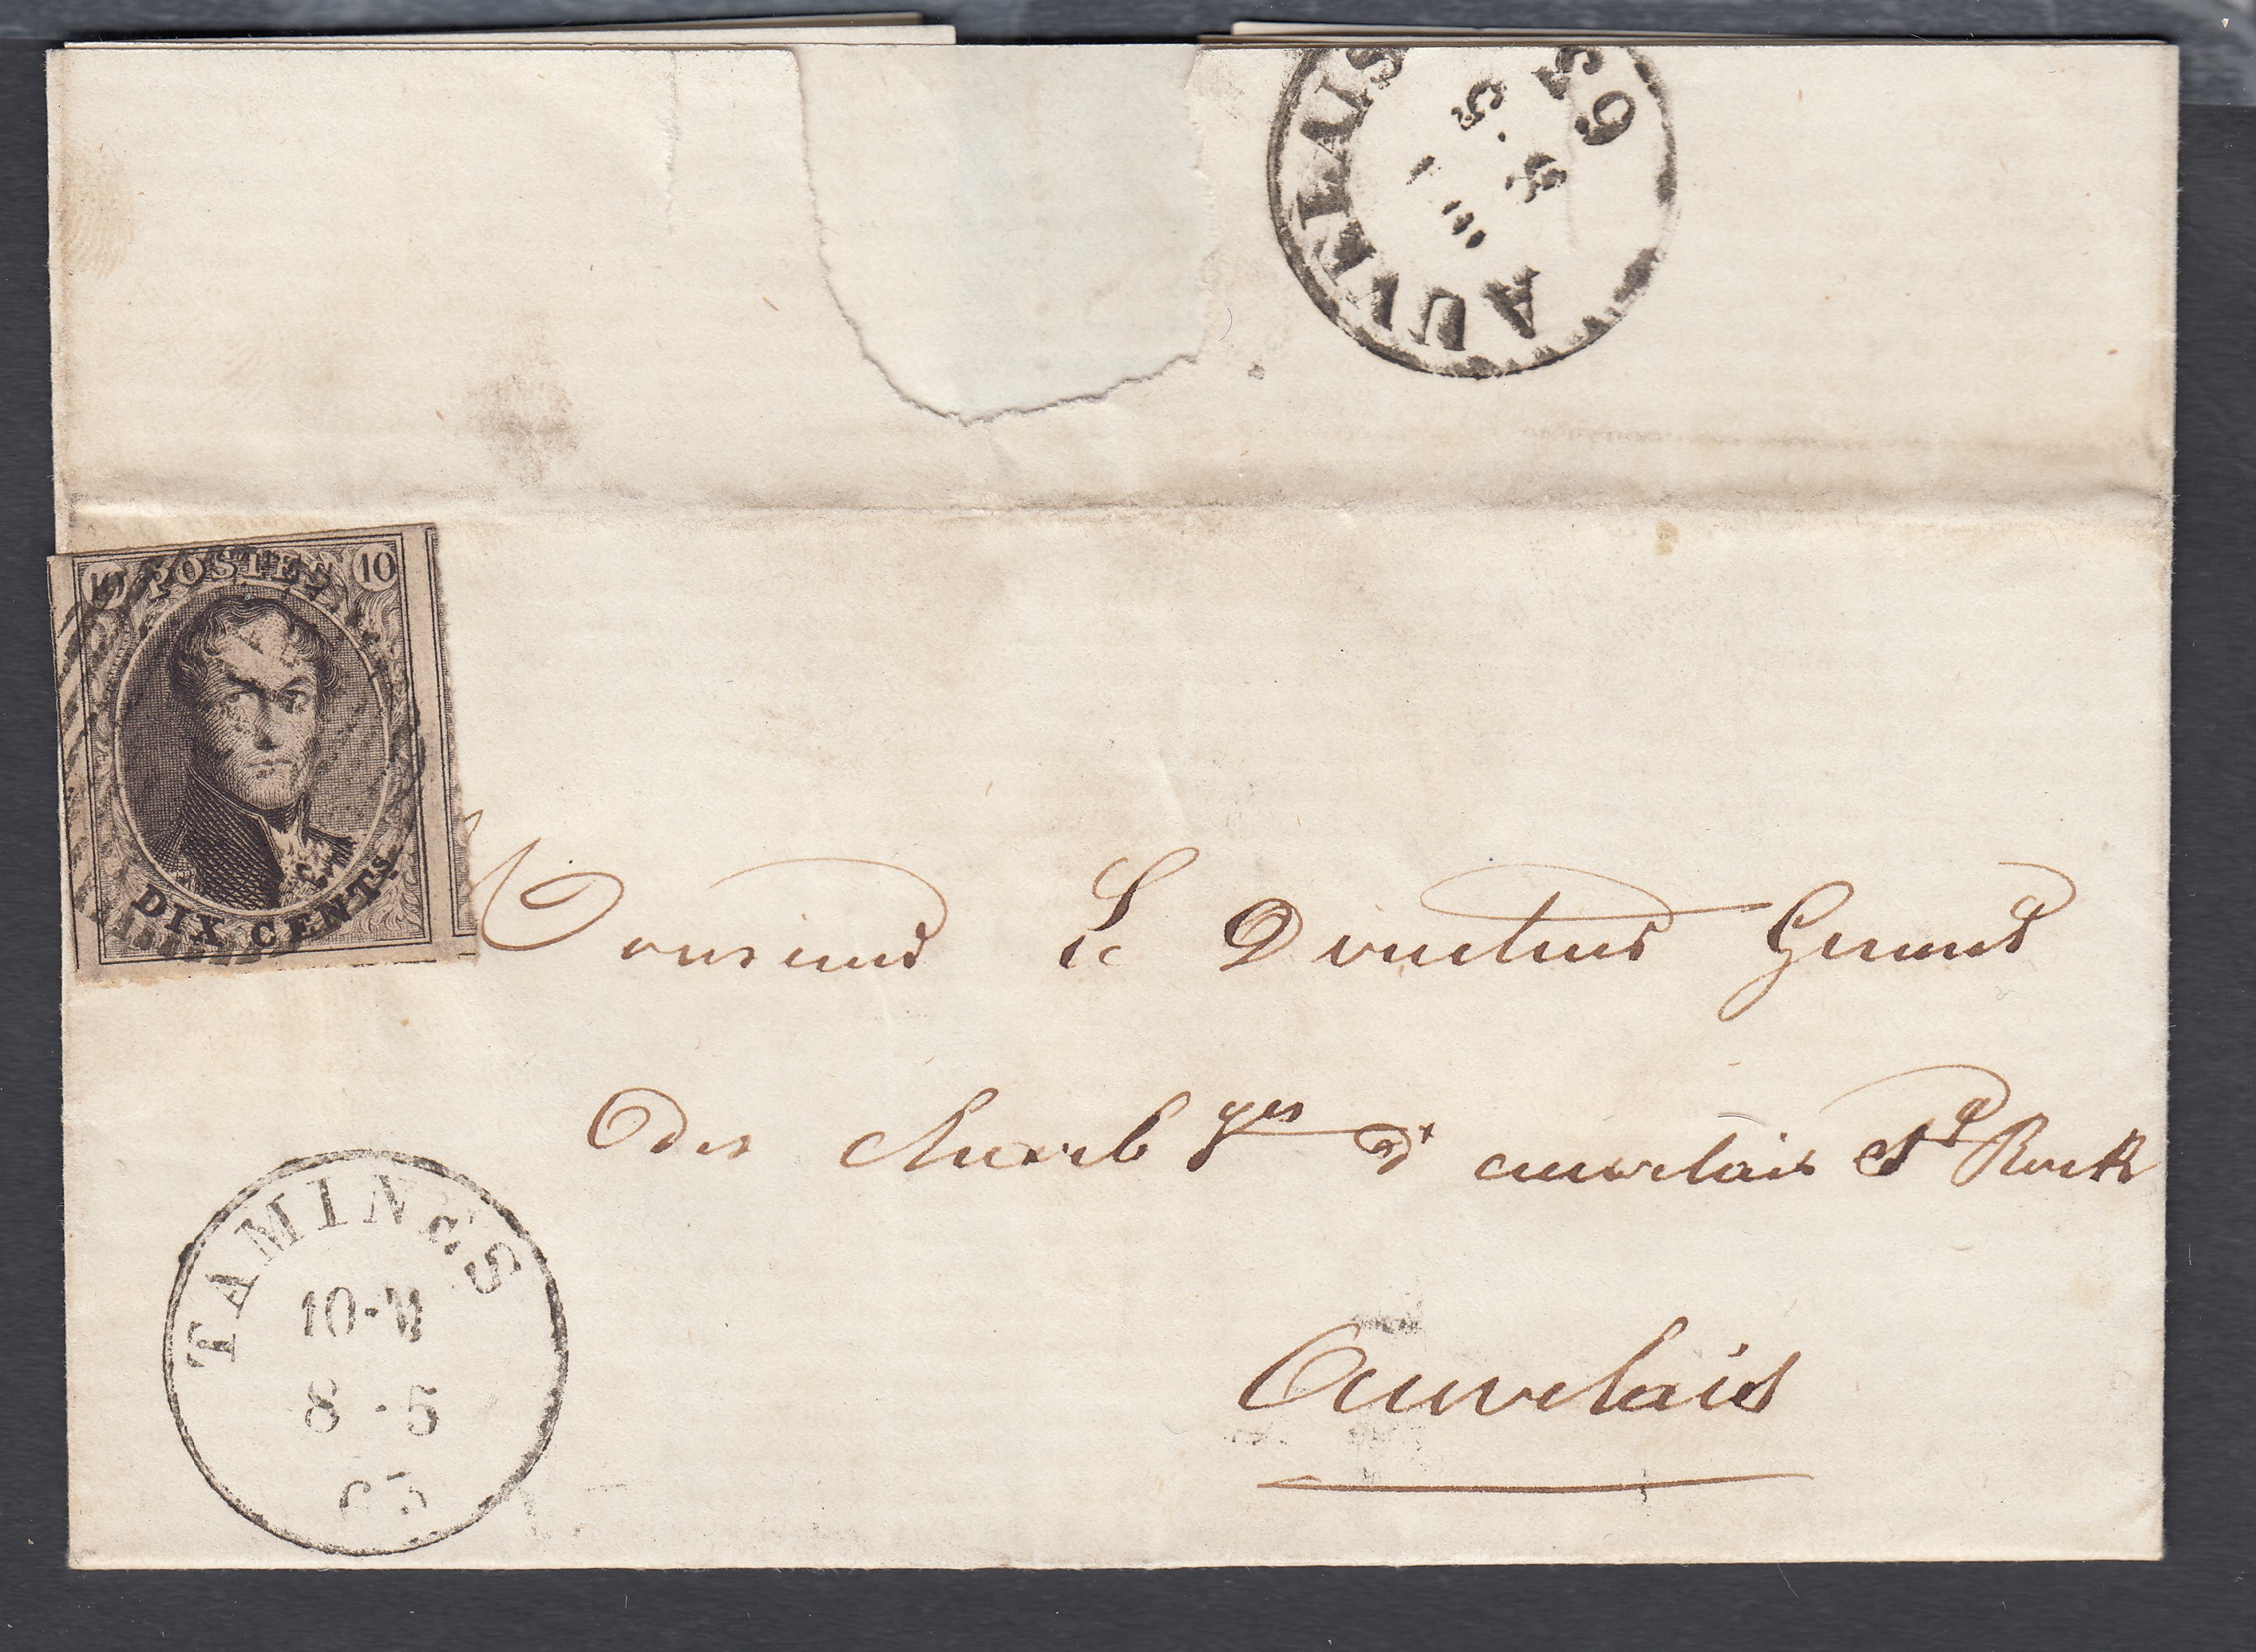 AUVELAIS
10 POSTES 10
DIX CENTS
Monsieur Le Directeur Gerant
des charb ges d' auvelais St Roch
Auvelais
TAMINES
10-M
8-5
63